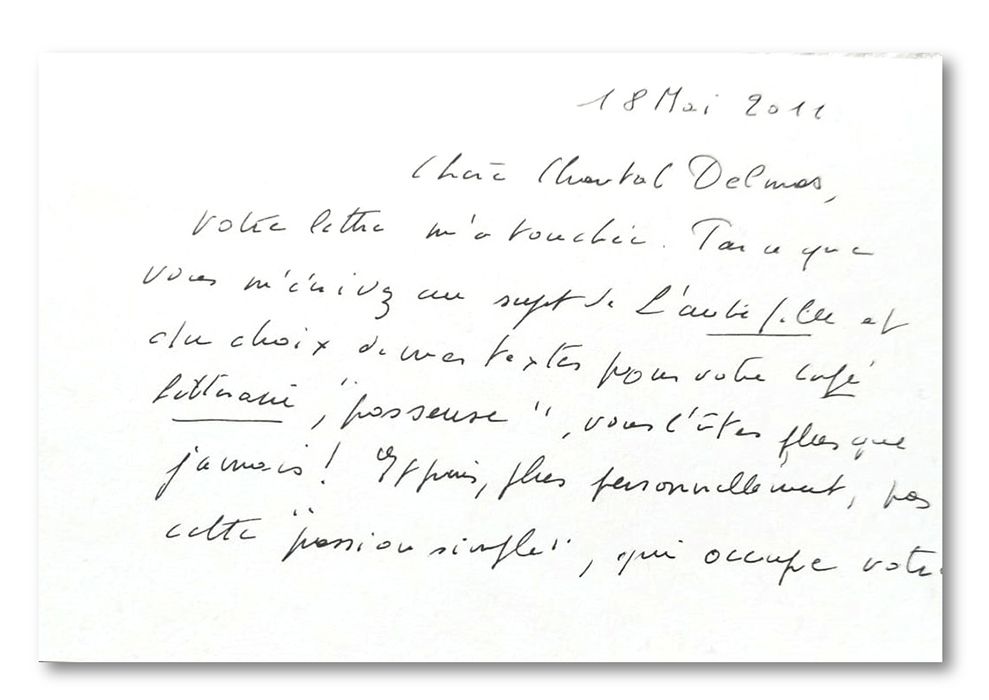 18 Mai 2011
Chère Chantal Delmas,
votre lettre m'a touchée. Par ce que
vous m'écrivez au sujet de L'autre fille et
du choix de mes textes pour votre café
littéraire, "passeuse", vous l'êtes plus que
jamais! Et puis, plus personnellement, par
cette "passion simple", qui occupe votre